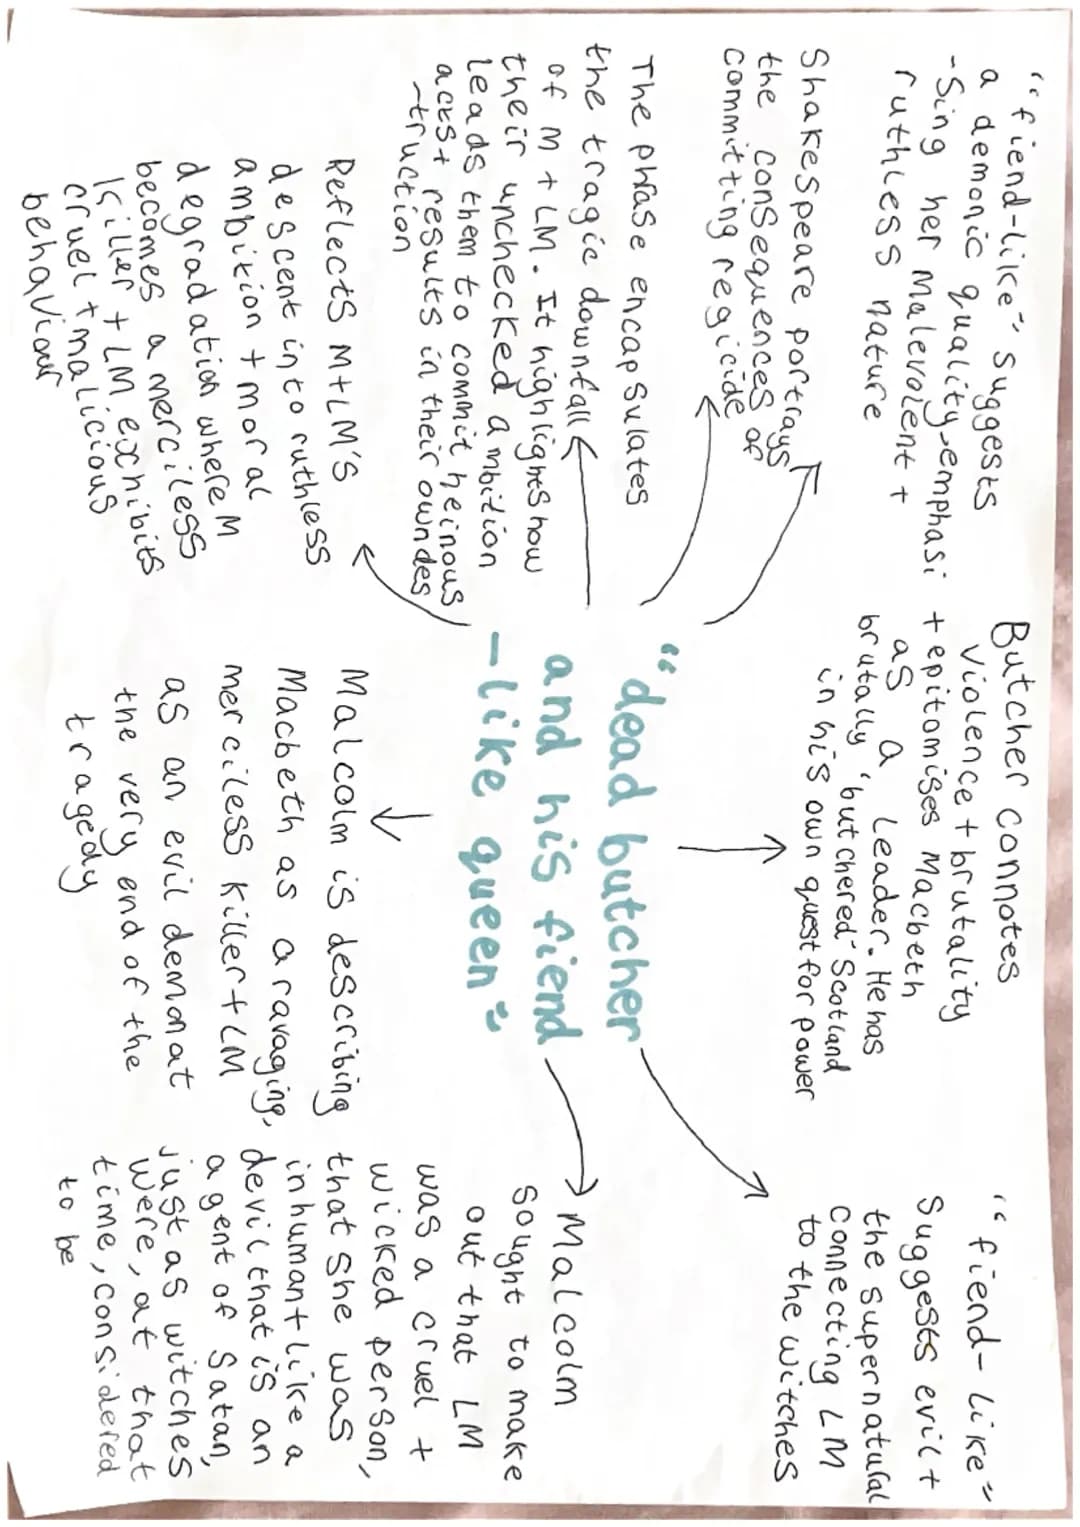 "fiend-like" suggests
a demonic quality, emphasi
-sing her malevolent +
ruthless nature
Butcher connotes
violence + brutality
+ epitomises Macbeth
as a leader. He has
brutally 'butchered' Scotland
in his own quest for power
"fiend-like"
suggests evil +
the supernatural
connecting LM
to the witches
Shakespeare portrays
the consequences of
committing regicide
The phrase encapsulates
the tragic downfall
of M + LM. It highlights how
their unchecked ambition
leads them to commit heinous
acts + results in their own des
-truction
"dead butcher
and his fiend
-like queen"
Malcolm
sought to make
out that LM
was a cruel +
wicked person,
that she was
inhuman + like a
devil that is an
agent of Satan,
just as witches
were, at that
time, considered
to be
Reflects M+LM's
descent into ruthless
ambition + moral
degradation where M
becomes a merciless
killer + LM exhibits
cruel + malicious
behaviour
Malcolm is describing
Macbeth as a ravaging,
merciless killer + LM
as an evil demon at
the very end of the
tragedy